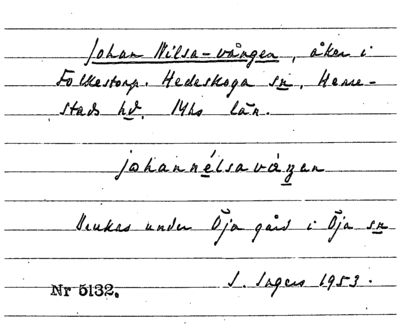 Johan Nilsa-vången, åker i
Folkestorp. Hedeskoga sn, Herre-
stads hd. Mhs län.
johannélsavàŋan
Brukas under Öja gård i Öja sn
S. Ingers 1953.
Nr 5132.